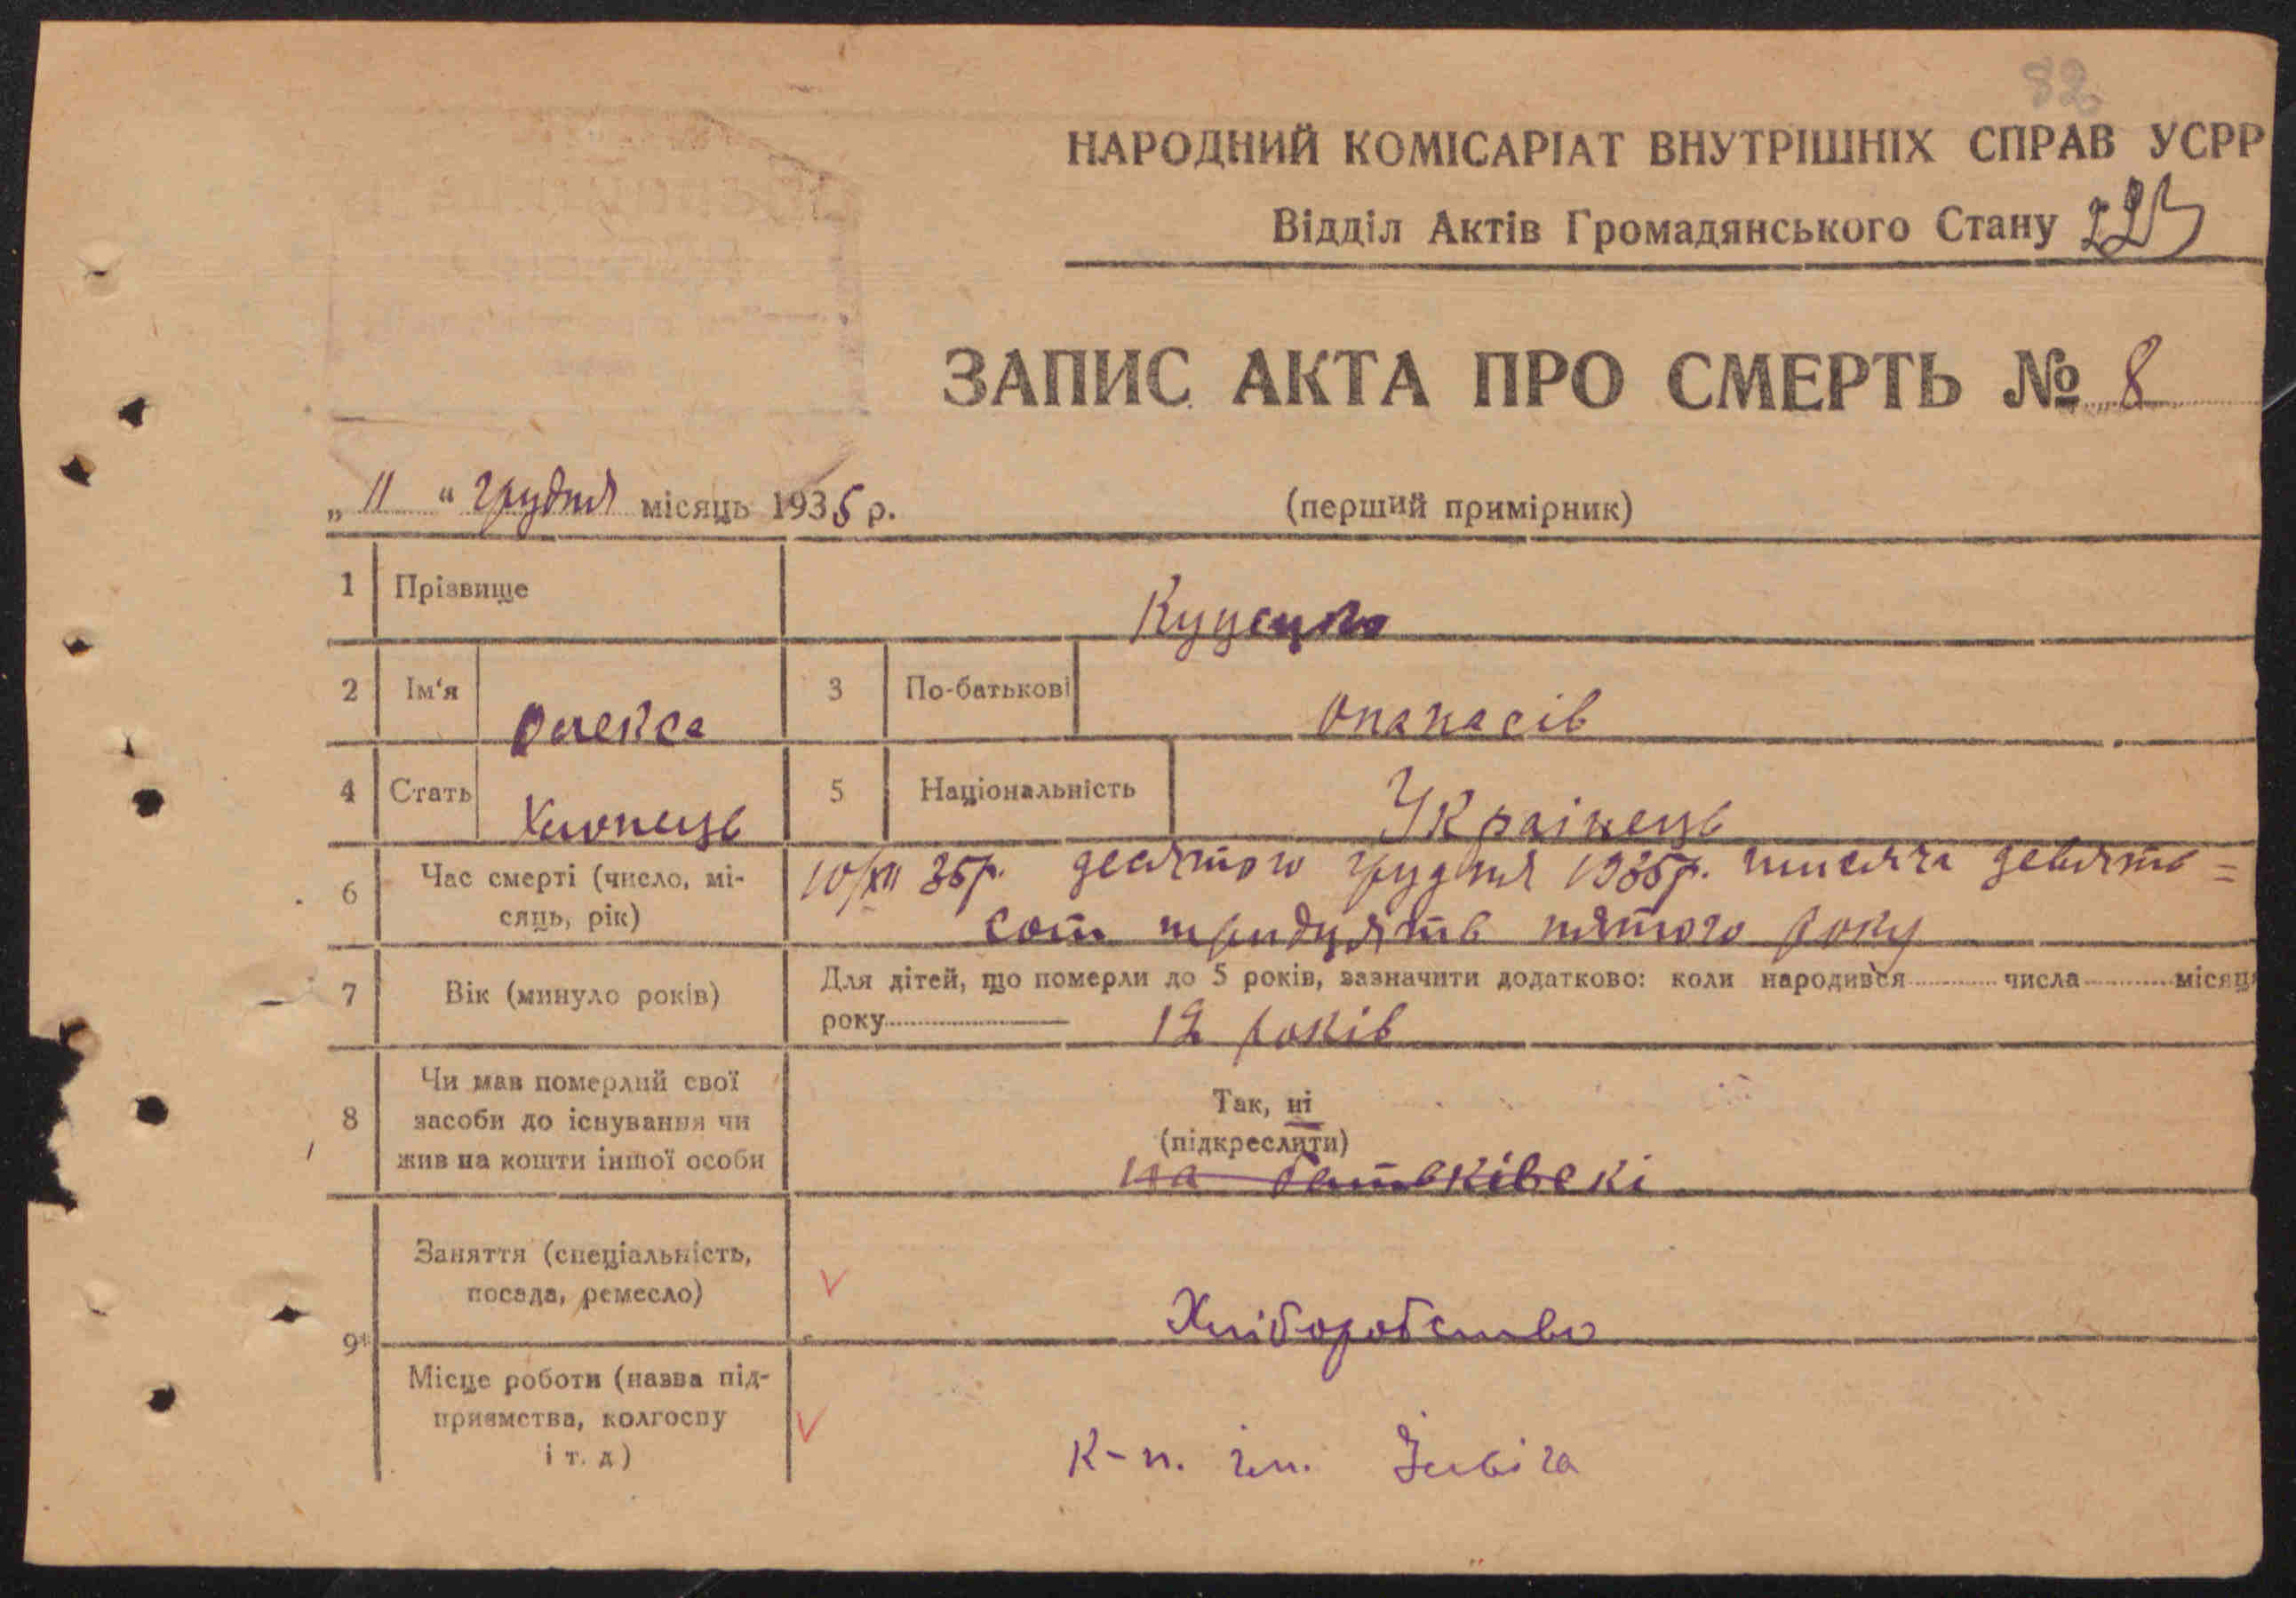 82
НАРОДНИЙ КОМІСАРІАТ ВНУТРІШНІХ СПРАВ УСРР
Відділ Актів Громадянського Стану
ЗАПИС АКТА ПРО СМЕРТЬ № 8
„ 11 “ грудня місяць 1935 р.
(перший примірник)
1 Прізвище
2 Ім'я Олекса 3 По-батькові Опанасів
4 Стать Хлопець 5 Національність Українець
6 Час смерті (число, місяць, рік) 10/XII 35р. десятого грудня 1935р. тисяча девять=
сот тридцять пятого року
7 Вік (минуло років) Для дітей, що померли до 5 років, зазначити додатково: коли народився числа місяця
року 12 років
8 Чи мав померлий свої
засоби до існування чи
жив на кошти іншої особи
Так, ні
(підкреслити)
на батьківскі
9 Заняття (спеціальність,
посада, ремесло)
Хліборобство
Місце роботи (назва під-
приємства, колгоспу
і т. д)
К-п. ім.